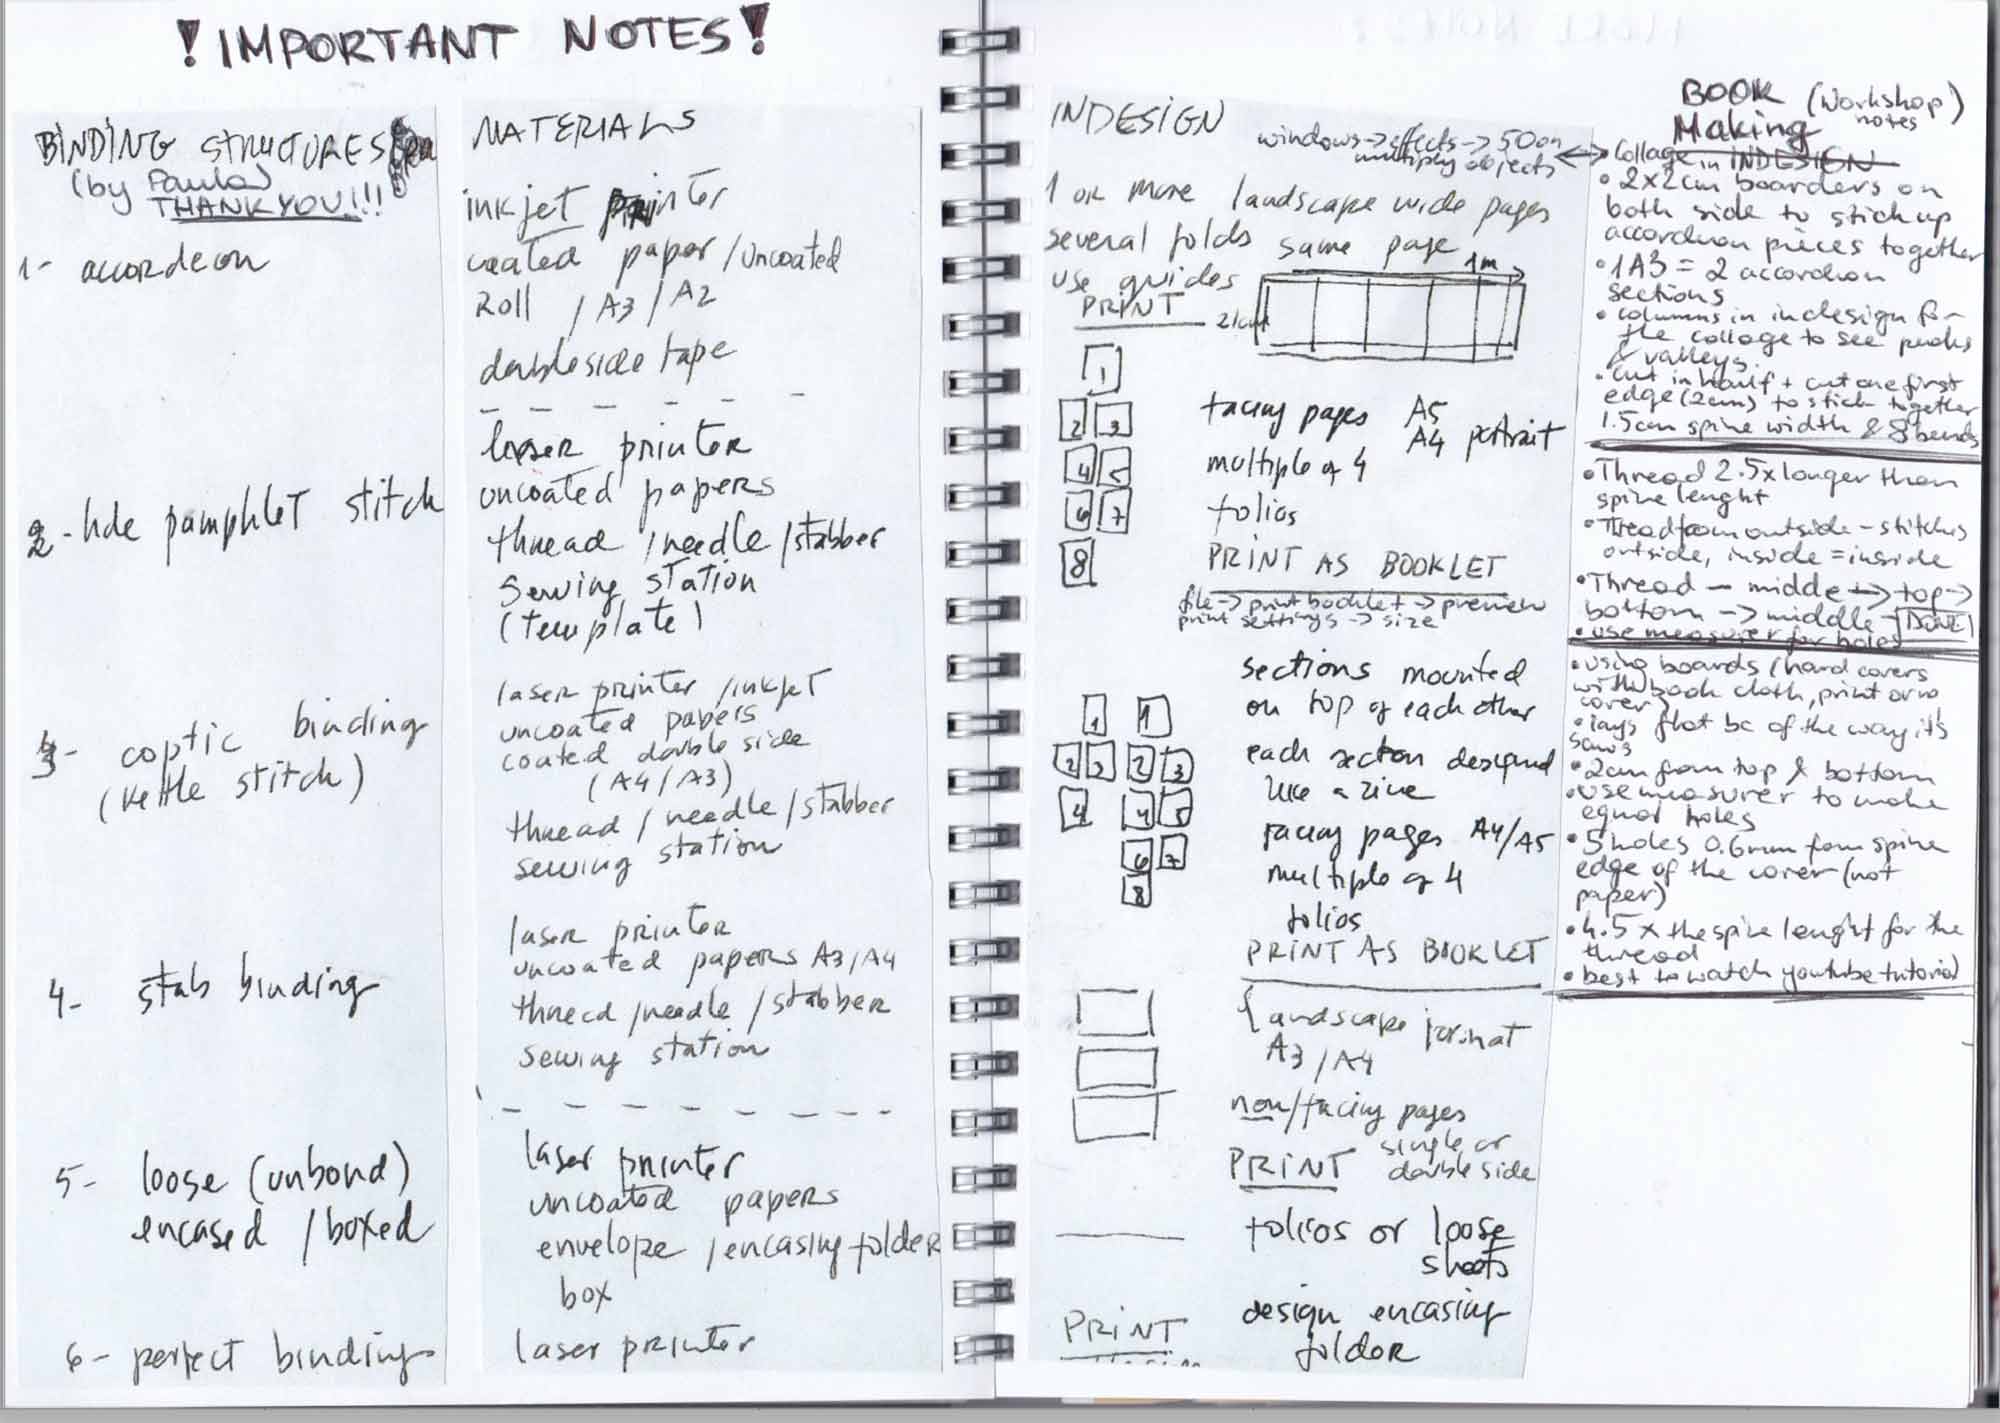 ! IMPORTANT NOTES !
BINDING STRUCTURES
(by Paula)
THANK YOU!!!
1- accordeon
2- hole pamphlet stitch
3- coptic binding
(kettle stitch)
4- stab binding
5- loose (unbond)
encased / boxed
6- perfect binding
MATERIALS
inkjet printer
coated paper / uncoated
Roll / A3 / A2
doubleside tape
laser printer
uncoated papers
thread / needle / stabber
sewing station
(template)
laser printer / inkjet
uncoated papers
coated double side
(A4 / A3)
thread / needle / stabber
sewing station
laser printer
uncoated papers A3/A4
thread / needle / stabber
sewing station
laser printer
uncoated papers
envelope / encasing folder
box
laser printer
INDESIGN
windows → effects → 50on
multiply objects
1 or more landscape wide pages
several folds same page
use guides
1m
PRINT
21cm
1
2 3
4 5
6 7
8
facing pages A5
A4 portrait
multiple of 4
folios
PRINT AS BOOKLET
file → print booklet → preview
print settings → size
sections mounted
on top of each other
each section designed
like a zine
facing pages A4/A5
multiple of 4
folios
PRINT AS BOOKLET
1 1
2 3 2 3
4 4 5
6 7
8
landscape format
A3 / A4
non/facing pages
PRINT single or
double side
folios or loose
sheets
design encasing
folder
PRINT
BOOK (Workshop
Making notes)
• Collage in INDESIGN
• 2x2cm boarders on
both side to stick up
accordeon pieces together
• 1A3 = 2 accordion
sections
• columns in indesign for
the collage to see peaks
& valleys.
• cut in half + cut one first
edge (2cm) to stick together
1.5cm spine width & 8 bends
• Thread 2.5x longer then
spine lenght
• Thread from outside - stitches
outside, inside = inside
• Thread - middle → top →
bottom → middle - DONE!
• use measurer for holes
• using boards (hard covers
with book cloth, print or no
cover)
• lays flat bc of the way it's
sawn
• 2cm from top & bottom
• use measurer to make
equal holes
• 5 holes 0.6mm from spine
edge of the cover (not
paper)
• 4.5 x the spine lenght for the
thread
• best to watch youtube tutorial